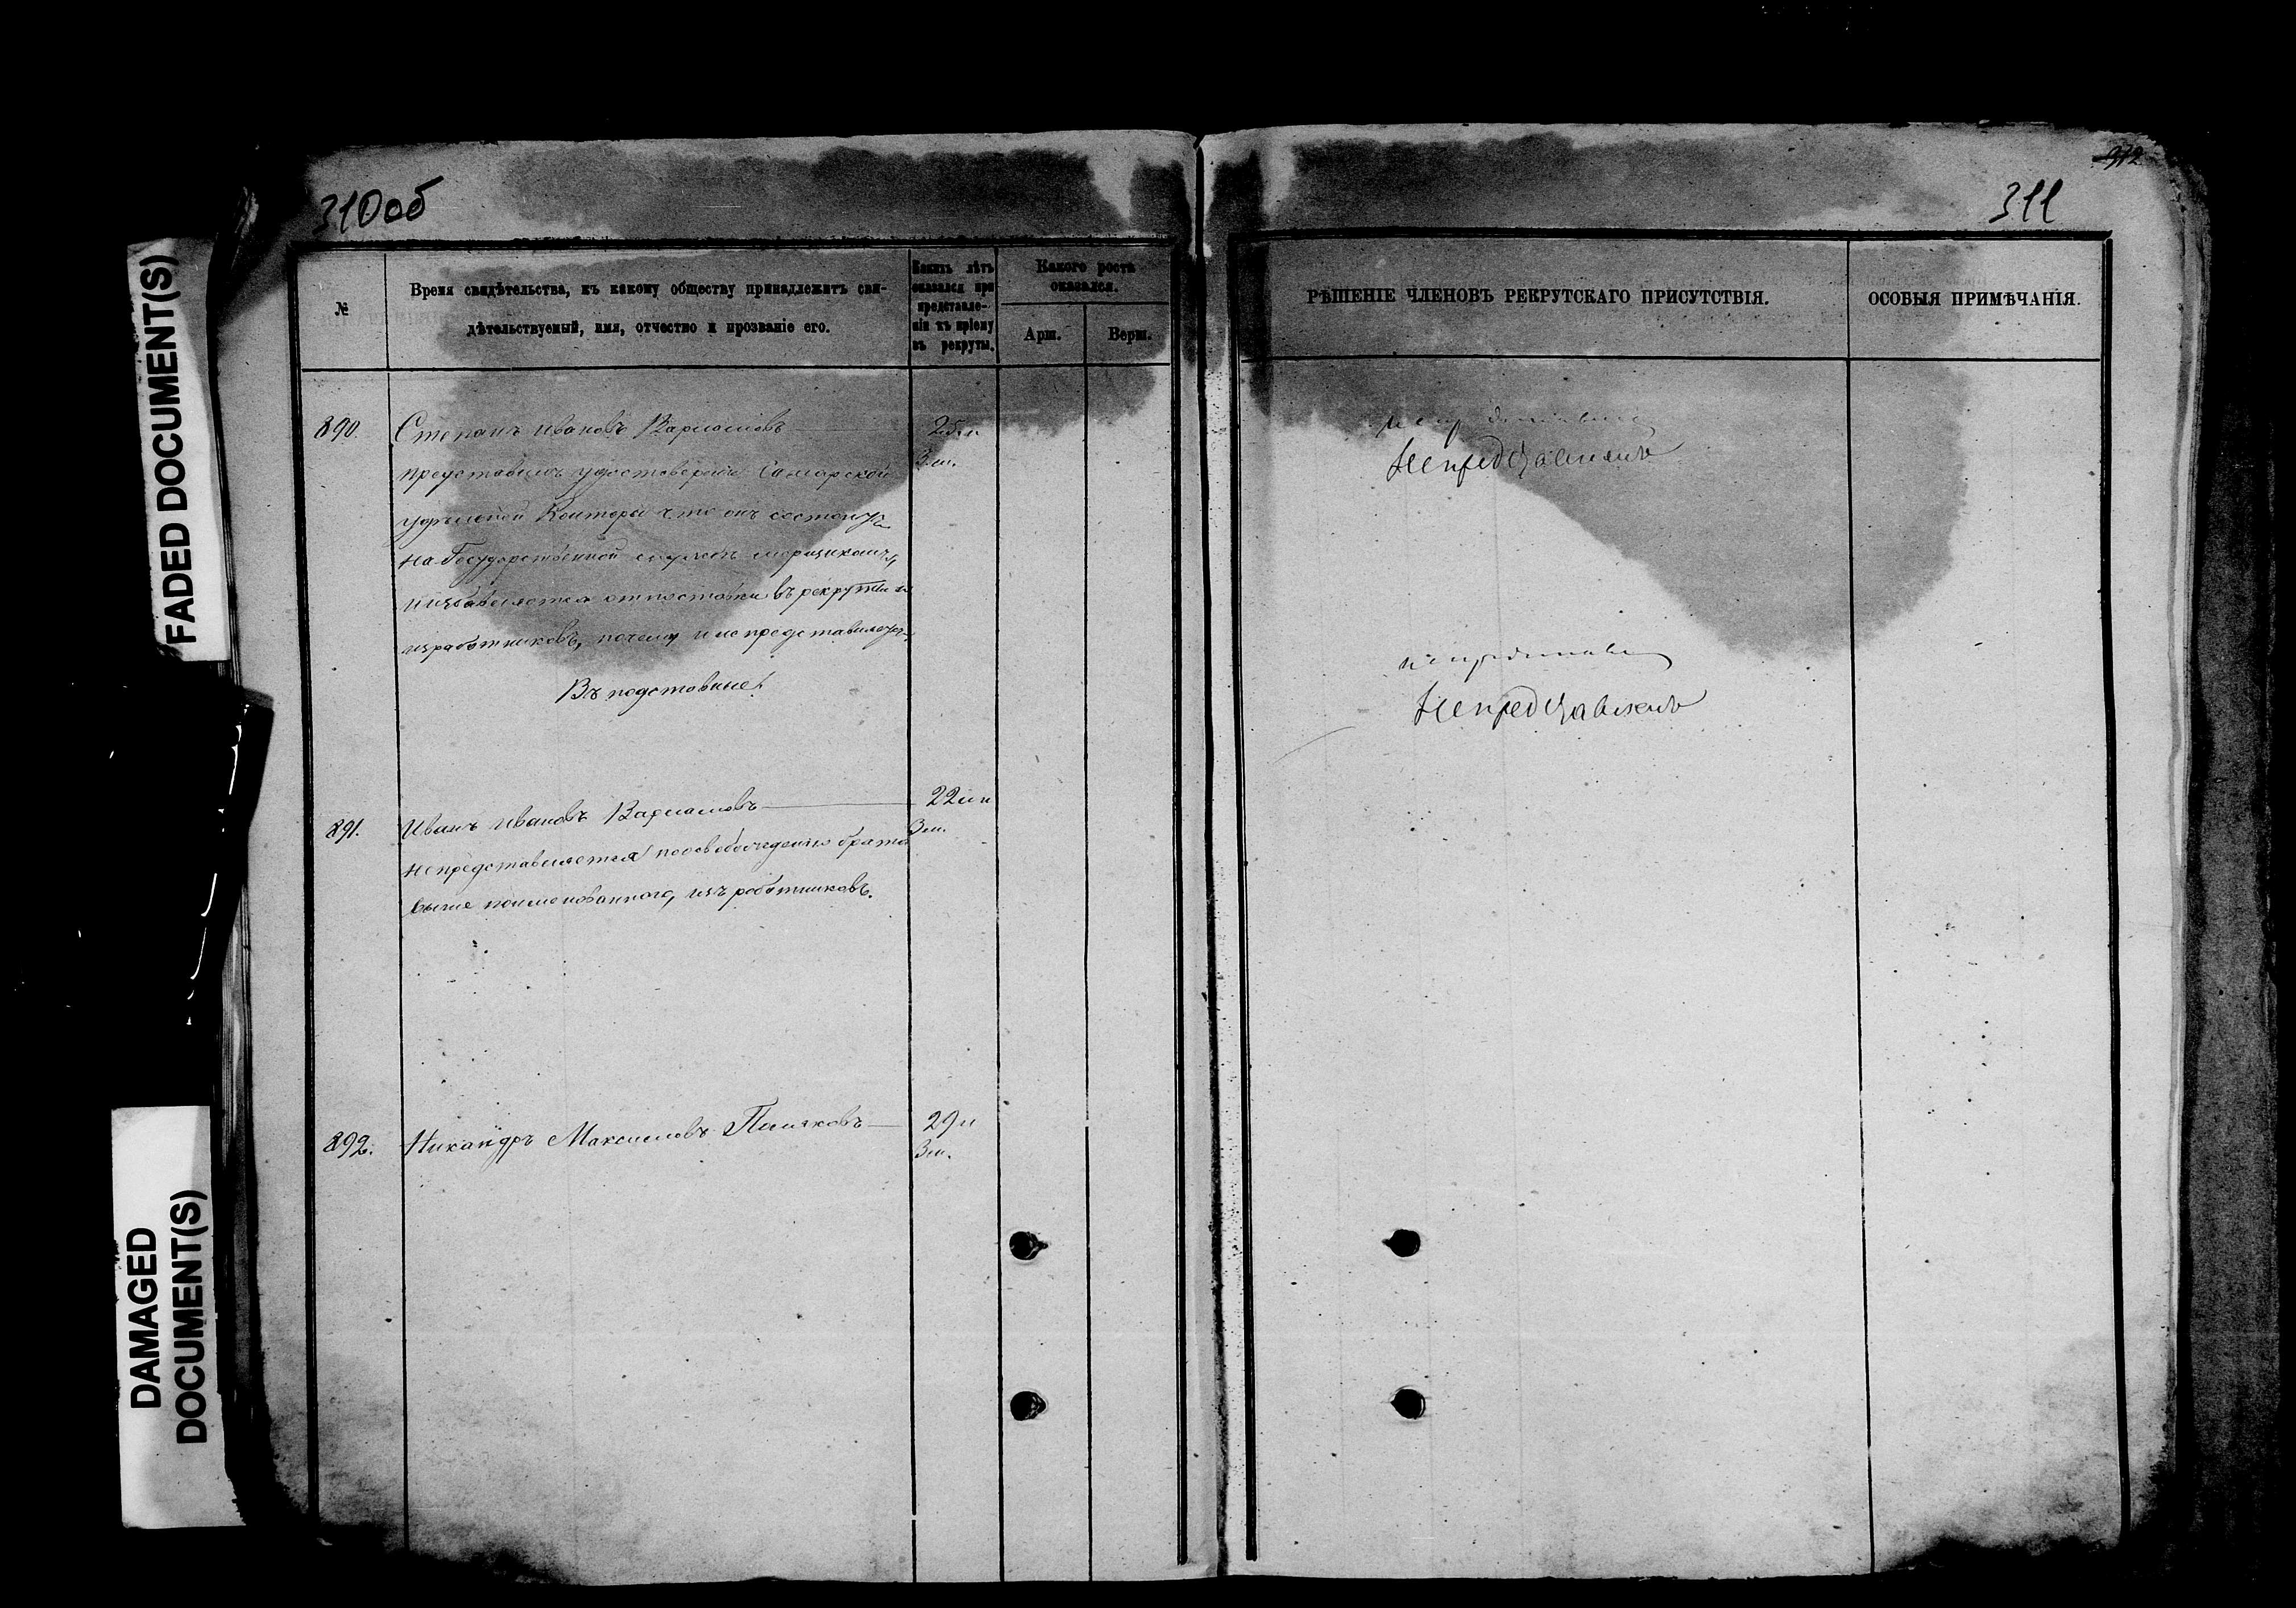 FADED DOCUMENT(S)
DAMAGED
DOCUMENT(S)
310об
№
Время свидѣтельства, къ какому обществу принадлежитъ сви-
дѣтельствуемый, имя, отчество и прозваніе его.
Какихъ лѣтъ
оказался при
представле-
ніи къ пріему
въ рекруты.
Какого роста
оказался.
Арш.
Верш.
890.
Степанъ Ивановъ Варламовъ
25
3 м.
представилъ удостовереніе Самарской
удѣльной Конторы что онъ состоитъ
на Государственной службѣ
избавляется отпоставки въ рекруты и
изработниковъ, почему и не представляетъ
Въ подставные.
891.
Иванъ Ивановъ Варламовъ
22
3 м.
непредставляется поосвобожденію брата
выше поименованнаго, изъ работниковъ.
892.
Никандръ Максимовъ Поляковъ
29
3 м.
312
311
РѢШЕНІЕ ЧЛЕНОВЪ РЕКРУТСКАГО ПРИСУТСТВІЯ.
ОСОБЫЯ ПРИМѢЧАНІЯ.
Непредставленъ
Непредставленъ